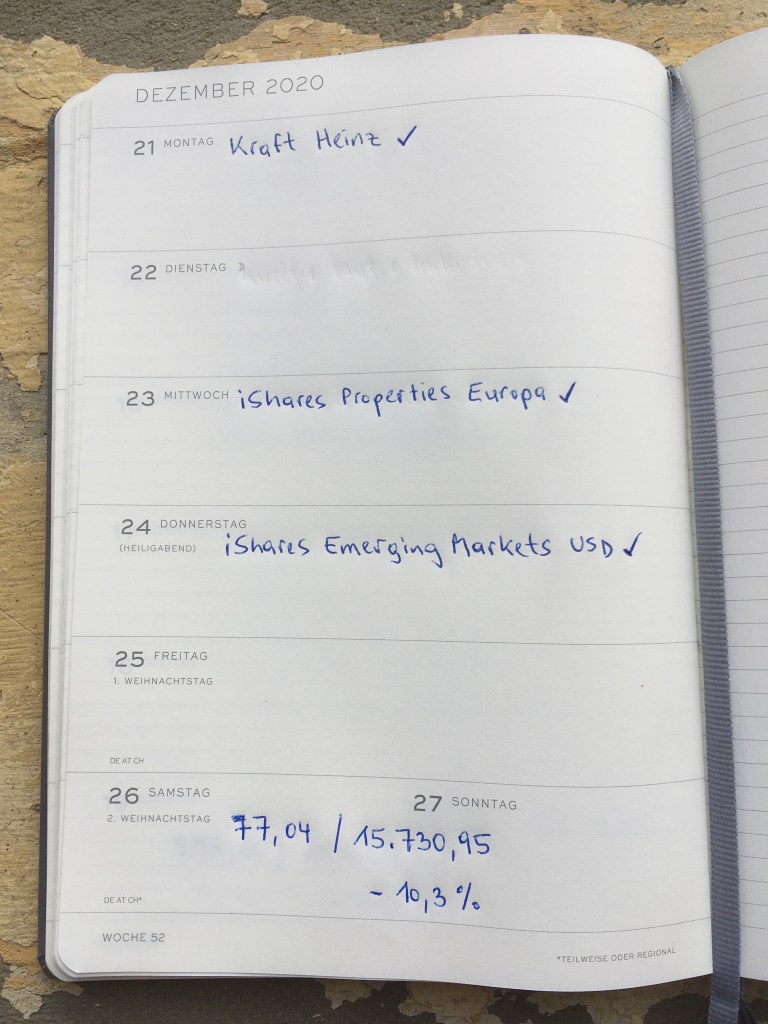 DEZEMBER 2020
21 MONTAG Kraft Heinz ✓
22 DIENSTAG
23 MITTWOCH iShares Properties Europa ✓
24 DONNERSTAG
(HEILIGABEND) iShares Emerging Markets USD ✓
25 FREITAG
1. WEIHNACHTSTAG
DE AT CH
26 SAMSTAG 27 SONNTAG
2. WEIHNACHTSTAG 77,04 / 15.730,95
- 10,3 %
DE AT CH*
WOCHE 52
*TEILWEISE ODER REGIONAL